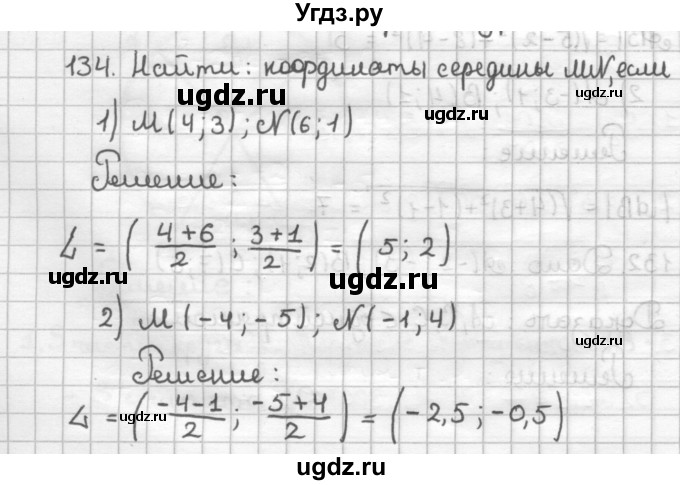 Угдз.ру
134. Найти: координаты середины MN, если
ugdz.ru
ugdz.ru
ugdz.ru
1) M(4;3); N(6;1)
Решение:
ugdz.ru
L = ( (4+6)/2 ; (3+1)/2 ) = ( 5; 2 )
ugdz.ru
2) M(-4;-5); N(-1;4)
ugdz.ru
ugdz.ru
Решение:
L = ( (-4-1)/2 ; (-5+4)/2 ) = (-2,5; -0,5)
ugdz.ru
ugdz.ru
ugdz.ru